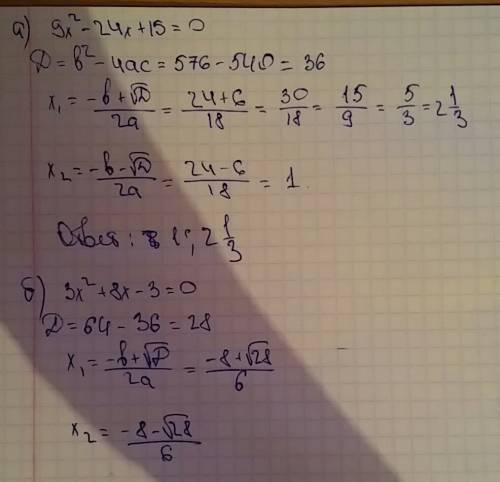 а) 9x² - 24x + 15 = 0
D = b² - 4ac = 576 - 540 = 36
x₁ = (-b + √D)/2a = (24 + 6)/18 = 30/18 = 15/9 = 5/3 = 2 1/3
x₂ = (-b - √D)/2a = (24 - 6)/18 = 1.
Ответ: 1; 2 1/3
б) 3x² + 8x - 3 = 0
D = 64 - 36 = 28
x₁ = (-b + √D)/2a = (-8 + √28)/6
x₂ = (-8 - √28)/6